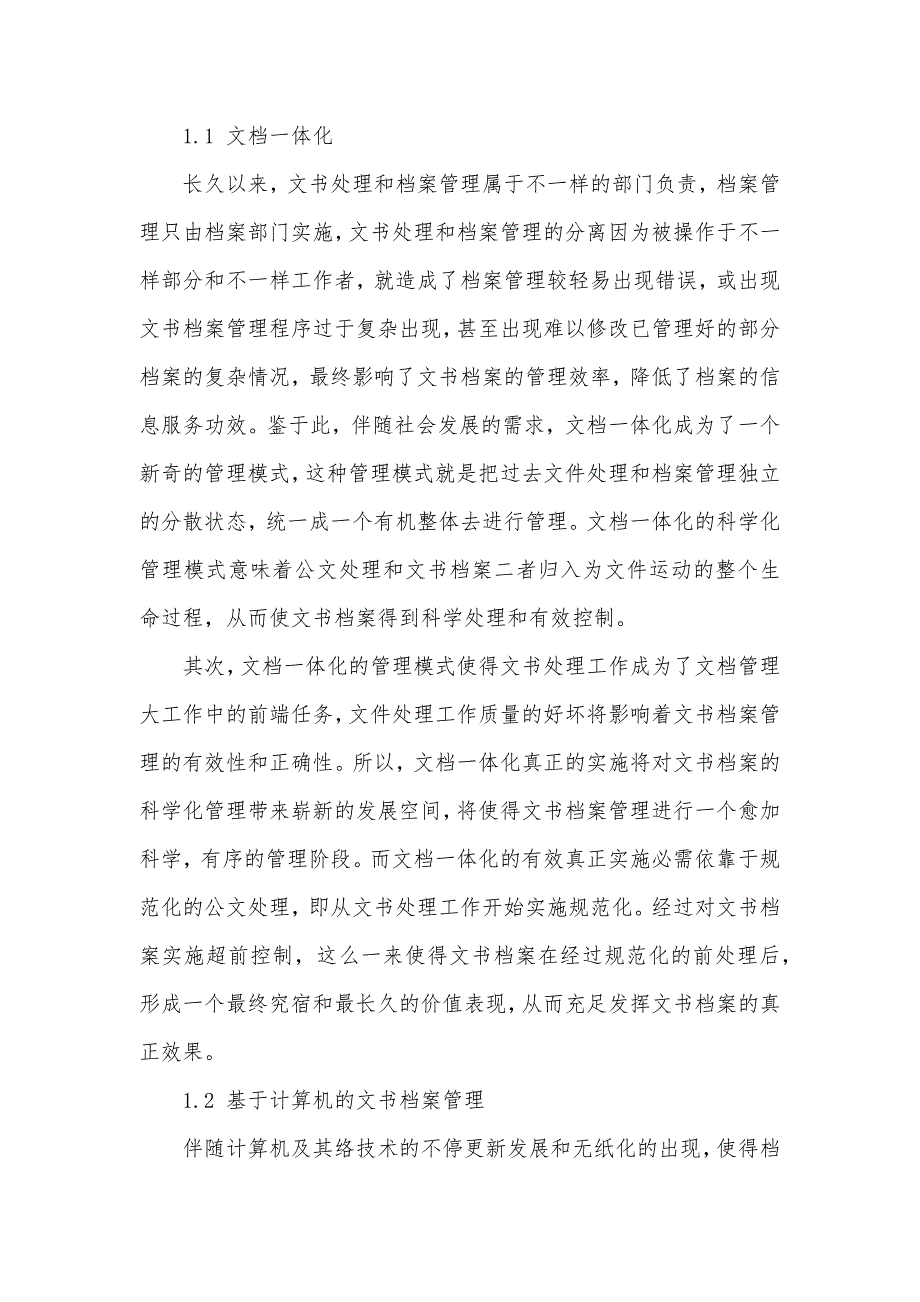 1.1 文档一体化
长久以来，文书处理和档案管理属于不一样的部门负责，档案管
理只由档案部门实施，文书处理和档案管理的分离因为被操作于不一
样部分和不一样工作者，就造成了档案管理较轻易出现错误，或出现
文书档案管理程序过于复杂出现，甚至出现难以修改已管理好的部分
档案的复杂情况，最终影响了文书档案的管理效率，降低了档案的信
息服务功效。鉴于此，伴随社会发展的需求，文档一体化成为了一个
新奇的管理模式，这种管理模式就是把过去文件处理和档案管理独立
的分散状态，统一成一个有机整体去进行管理。文档一体化的科学化
管理模式意味着公文处理和文书档案二者归入为文件运动的整个生
命过程，从而使文书档案得到科学处理和有效控制。
其次，文档一体化的管理模式使得文书处理工作成为了文档管理
大工作中的前端任务，文件处理工作质量的好坏将影响着文书档案管
理的有效性和正确性。所以，文档一体化真正的实施将对文书档案的
科学化管理带来崭新的发展空间，将使得文书档案管理进行一个愈加
科学，有序的管理阶段。而文档一体化的有效真正实施必需依靠于规
范化的公文处理，即从文书处理工作开始实施规范化。经过对文书档
案实施超前控制，这么一来使得文书档案在经过规范化的前处理后，
形成一个最终究宿和最长久的价值表现，从而充足发挥文书档案的真
正效果。
1.2 基于计算机的文书档案管理
伴随计算机及其络技术的不停更新发展和无纸化的出现，使得档